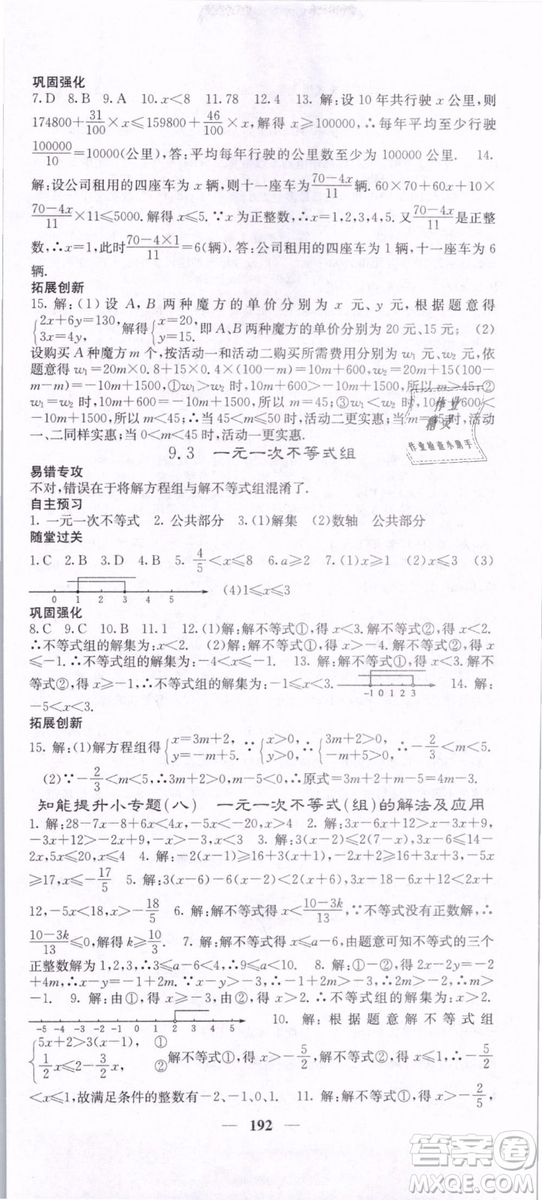 巩固强化
7.D 8.B 9.A 10.x<8 11.78 12.4 13. 解:设 10 年共行驶 x 公里,则
174800+31/100×x≤159800+46/100×x,解得 x≥100000,∴每年平均行驶
100000/10=10000(公里),答:平均每年行驶的公里数至少为 10000 公里. 14.
解:设公司租用的四座车为 x 辆,则十一座车为 70-4x/11 辆. 60×70+60x+10×
70-4x/11×11≤5000. 解得 x≤ ∵x 为正整数,∴x=1,2,3,4,5. 又∵70-4x/11是正整
数,∴x=1,此时70-4×1/11=6(辆). 答:公司租用的四座车为 1 辆,十一座车为 6
辆.
拓展创新
15. 解:(1) 设 A,B 两种魔方的单价分别为 x 元、y 元,根据题意得
{2x+6y=130, 3x=4y, 解得{x=20, y=15. 答:A,B 两种魔方的单价分别为 20 元、15 元; (2)
设购买 A 种魔方 m 个,按活动一和活动二购买所需费用分别为 w₁ 元、w₂ 元,依
题意得 w₁=20m×0.8+15×0.4×(100-m)=10m+600,w₂=20m+15(100-
m-m)=-10m+1500,①w₁>w₂ 时,10m+600>-10m+1500,所以 m>45;②
w₁<w₂ 时,10m+600<-10m+1500,所以 m<45;③w₁=w₂ 时,10m+600=
-10m+1500,所以 m=45;∴当 m<45 时,活动一更实惠;当 m=45 时,活动
一、二同样实惠;当 m>45 时,活动二更实惠.
作业
精灵
作业检查小助手
9.3 一元一次不等式组
易错专攻
不对,错误在于将解方程组与解不等式组混淆了.
自主预习
1. 一元一次不等式 2. 公共部分 3. (1)解集 (2)数轴 公共部分
随堂过关
1.C 2.B 3.D 4.B 5. 4/5<x≤8 6.a≥2 7.(1)x≤3 (2)x>1 (3)
0 1 2 3 4 5 (4)1<x≤3
巩固强化
8.C 9.C 10.B 11.1 12.(1)解:解不等式①,得 x<3. 解不等式②,得 x<2.
∴不等式组的解集为:x<2. (2)解:解不等式①,得 x<-1. 解不等式②,得 x
≤-1. ∴不等式组的解集为:x<-1. 13. 解:x≤3 -1 0 1 2 3 14. 解:
-5<x<3.
拓展创新
15. 解:(1)解方程组得{x=3m+2, y=-m+5. ∵{x>0, y>0, ∴{3m+2>0, -m+5>0, ∴-2/3<m
<5. (2)∵-2/3<m<5,∴3m+2>0,m-5<0,∴原式=3m+2+m-5=4m-3.
知能提升小专题(八) 一元一次不等式(组)的解法及应用
1. 解:28-7x-8+6x<4,-x<-16,x>16. 2. 解:3x-6+12x>3x+9,
-x>3,x<-3. 3. 解:3(x+3)≤2(7-x)-6,3x+9≤14-2x-6,5x≤-1,x
≤-1/5. 4. 解:-2(x-1)-(x+2)<3(4+x),-2x+2-x-2<12+3x,-6x<
12,x>-2. 5. 解:3(x-6)-6(x-2)≤2(x+3)+5,3x-6x+12≤2x+6+
12,-5x<18,x>-18/5. 6. 解:解不等式得 x<10-3k/13,∵不等式没有正数解,∴
10-3k/13≤0. 解得 k≥10/3. 7. 解:解不等式得 x≤a-6,由题意可知不等式的三个
正整数解为 1,2,3,∴3≤a-6<4. 解得 9≤a<10. 8. 解:由①,得 x≤1. 由②,得 x
<4. ∴x≤1. 9. 解:由①,得 x≥2. 由②,得 x>-1. ∴x≥2
-5 -4 -3 -2 -1 0 1 2 3 4 5 10. 解:根据题意解不等式组
{5x+2>3(x-1), ① 1/2x≤2-3/2x, ② 解不等式①,得 x>-5/2. 解不等式②,得 x≤1. ∴-5/2
<x≤1,故满足条件的整数有-2、-1、0、1.
192
答案圈